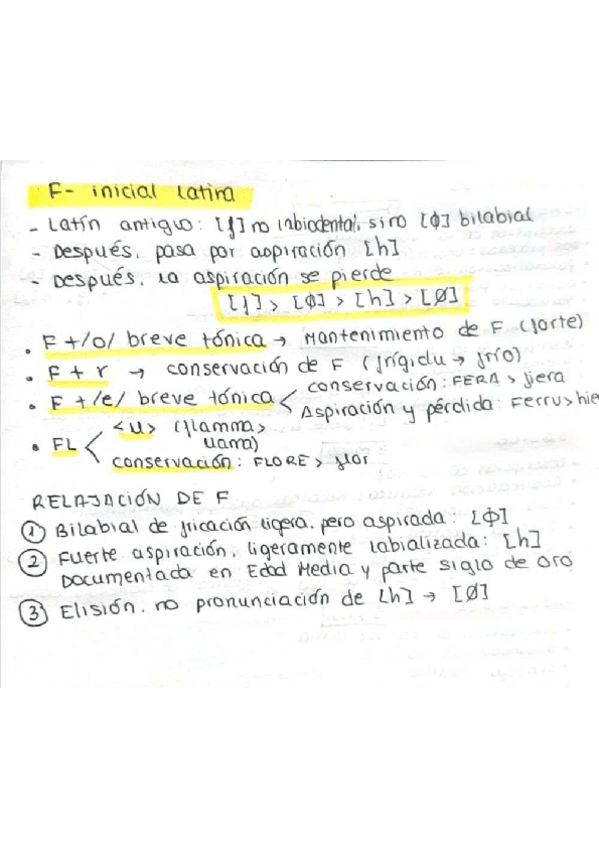 F- inicial latina
- Latín antiguo: [f] no labiodental, sino [ɸ] bilabial
- Después, pasa por aspiración [h]
- Después, la aspiración se pierde
[f] > [ɸ] > [h] > [Ø]
• F +/o/ breve tónica → Mantenimiento de F (forte)
• F + r → conservación de F (frigidu → frío)
• F +/e/ breve tónica < conservación: FERA > fiera
Aspiración y pérdida: Ferru > hie
• FL < <ll> (flamma > llama)
conservación: FLORE > flor
RELAJACIÓN DE F
① Bilabial de fricación ligera, pero aspirada: [ɸ]
② Fuerte aspiración, ligeramente labializada: [h]
Documentada en Edad Media y parte siglo de oro
③ Elisión, no pronunciación de [h] → [Ø]